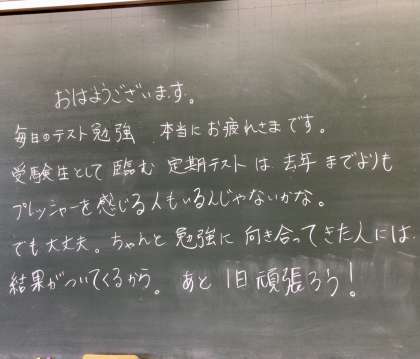 おはようございます。
毎日のテスト勉強、本当にお疲れさまです。
受験生として臨む定期テストは去年までよりも
プレッシャーを感じる人もいるんじゃないかな。
でも大丈夫。ちゃんと勉強に向き合ってきた人には、
結果がついてくるから。あと1日頑張ろう!